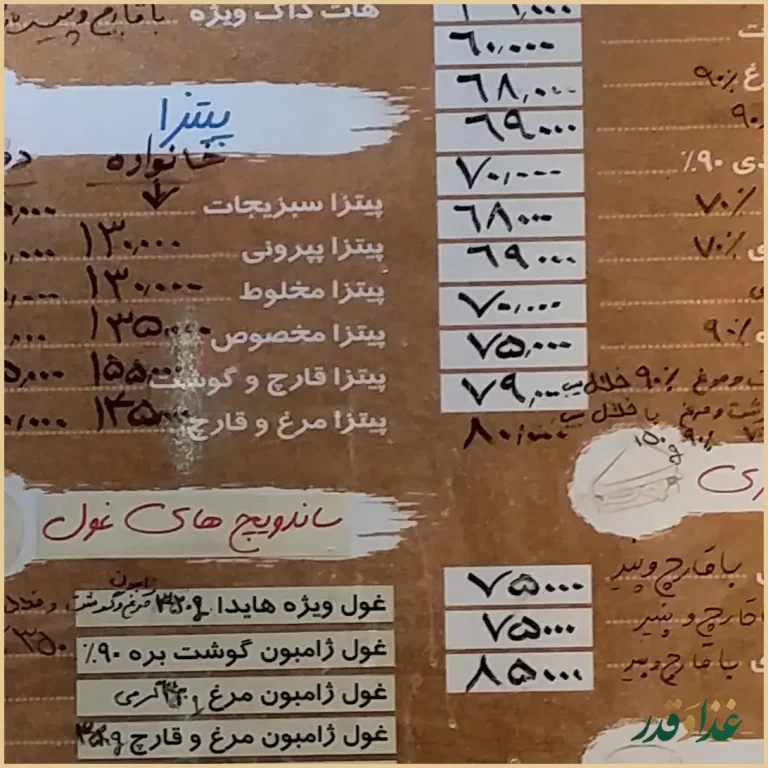 هات داگ ویژه با قارچ و پنیر
پیتزا
خانواده
پیتزا سبزیجات
پیتزا پپرونی ۱۳۰,۰۰۰
پیتزا مخلوط ۱۳۰,۰۰۰
پیتزا مخصوص ۱۳۵,۰۰۰
پیتزا قارچ و گوشت ۱۵۵,۰۰۰
پیتزا مرغ و قارچ ۱۳۵,۰۰۰
ساندویچ های غول
غول ویژه هایدا
غول ژامبون گوشت بره ۹۰٪ ۳۵۰
غول ژامبون مرغ گرمی
غول ژامبون مرغ و قارچ
۶۰,۰۰۰
۹۰٪ ۶۸,۰۰۰
۹۰ ۶۹,۰۰۰
۹۰٪ ۷۰,۰۰۰
۷۰٪ ۶۸,۰۰۰
۷۰٪ ۶۹,۰۰۰
۷۰,۰۰۰
۹۰٪ ۷۵,۰۰۰
و مرغ ۹۰٪ خلال سیب ۷۹,۰۰۰
و مرغ با خلال سیب ۸۰,۰۰۰
۹۰٪ ۱۵۰g
با قارچ و پنیر ۷۵,۰۰۰
قارچ و پنیر ۷۵,۰۰۰
با قارچ و پنیر ۸۵,۰۰۰
غذا و قدر